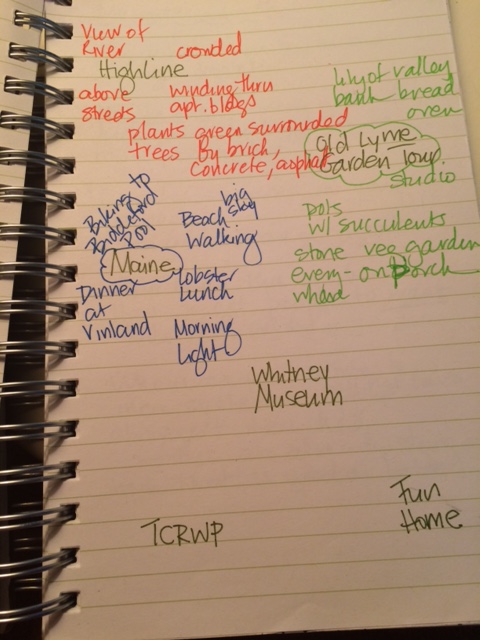 View of
River crowded
Highline
above winding thru
streets apt. bldgs
plants green surrounded
trees by brick,
concrete, asphalt
lily of valley
bank bread
oven
Old Lyme
Garden Tour
studio
pots
w/ succulents
stone veg garden
on porch
Biking to
Biddeford
Pool
big
sky
Beach
Walking
Maine
Lobster
Lunch
Dinner
at
Vinland
Morning
Light
Whitney
Museum
Fun
Home
TCRWP